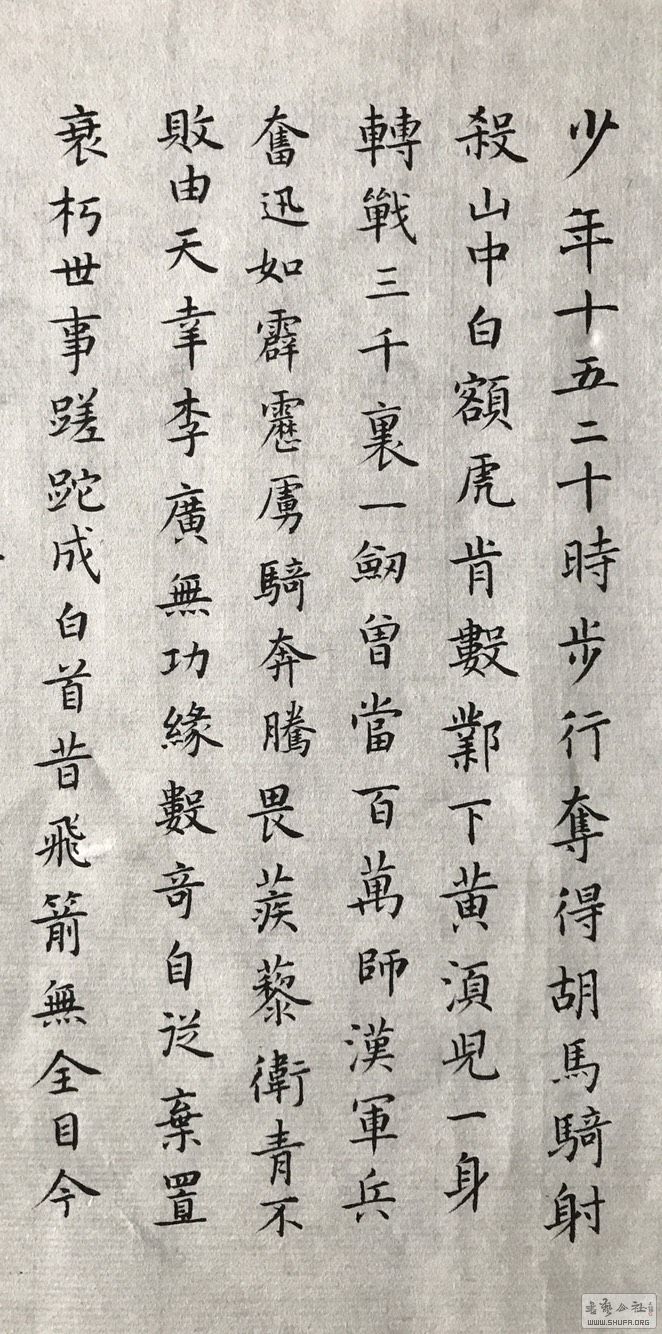 少年十五二十時步行奪得胡馬騎射
殺山中白額虎肯數鄴下黃須兒一身
轉戰三千裏一劒曾當百萬師漢軍兵
奮迅如霹靂虜騎奔騰畏蒺藜衛青不
敗由天幸李廣無功緣數奇自從棄置
衰朽世事蹉跎成白首昔飛箭無全目今
書藝公社
WWW.SHUFA.ORG